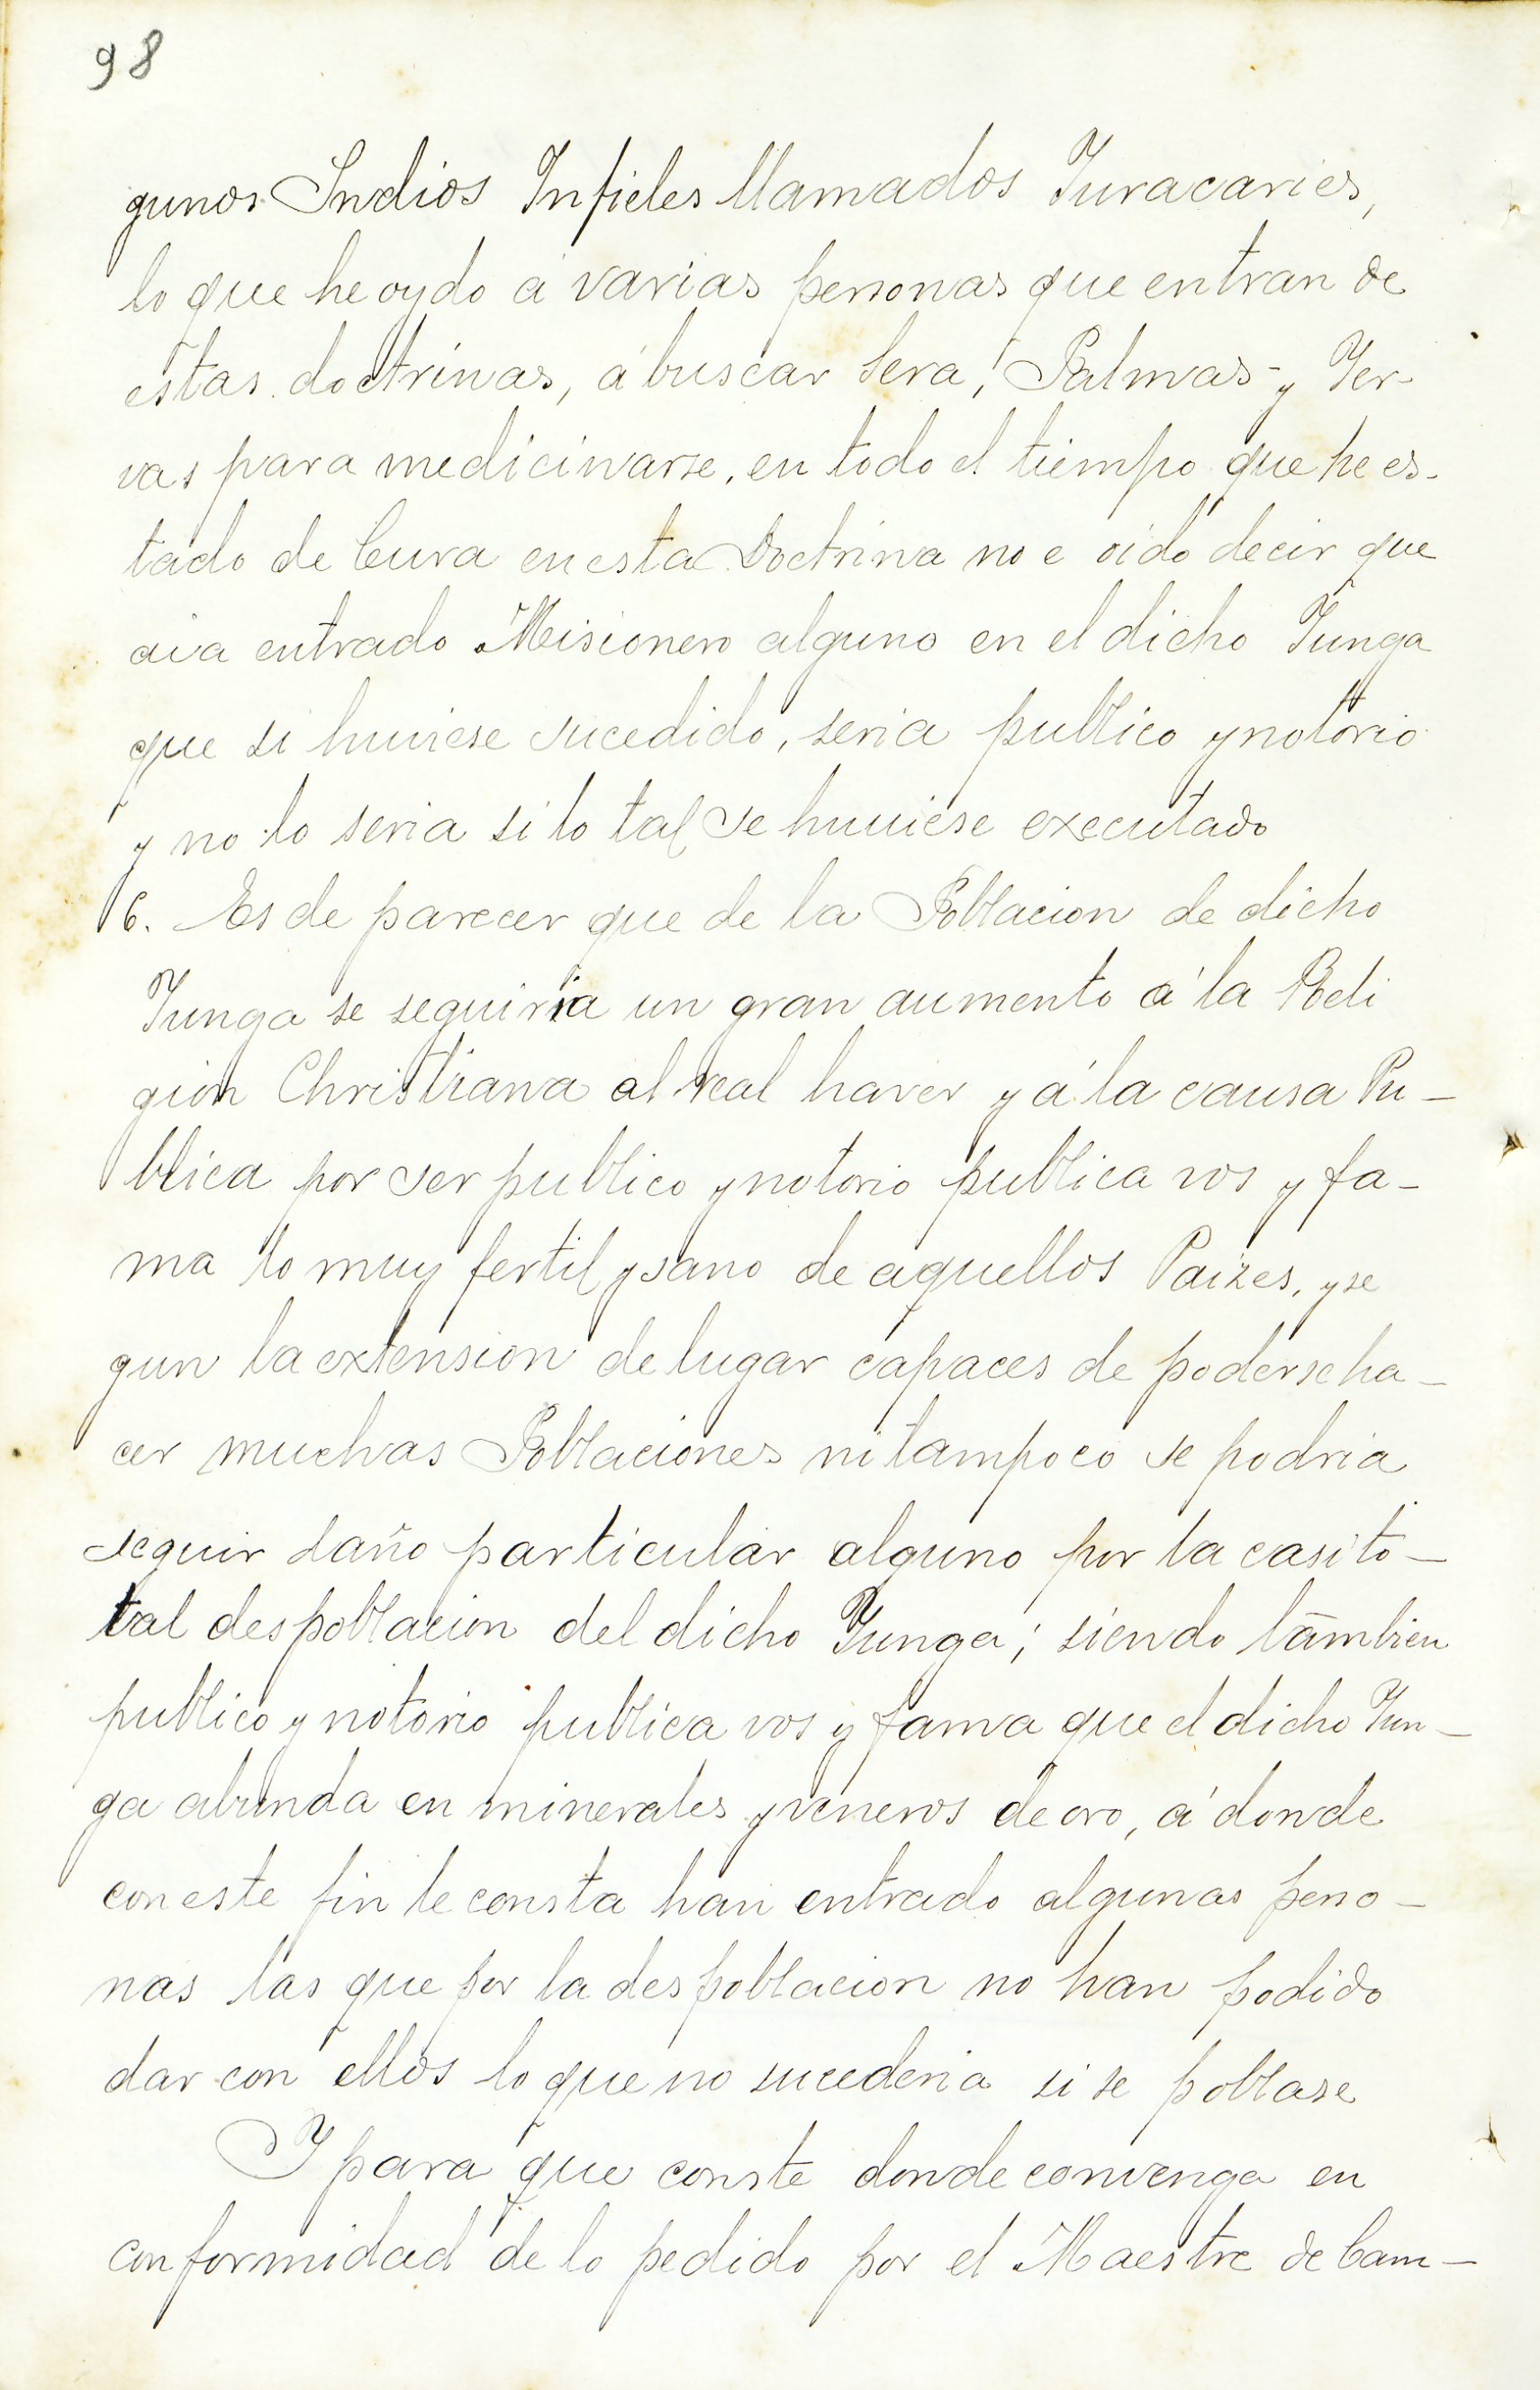 98
gunos Indios Infieles llamados Yuracaries,
lo que he oydo á varias personas que entran de
estas doctrinas, á buscar Sera, Palmas y Yer-
vas para medicinarse, en todo el tiempo que he es-
tado de Cura en esta Doctrina no e oido decir que
aia entrado Misionero alguno en el dicho Yunga
que si huviese sucedido, seria publico y notorio
y no lo seria si lo tal se huuiese executado
6. Es de parecer que de la Poblacion de dicho
Yunga se seguiria un gran aumento á la Reli
gion Christiana al real haver y á la causa Pu-
blica por ser publico y notorio publica vos y fa-
ma lo muy fertil y sano de aquellos Paizes, y se
gun la extension de lugar capaces de poderse ha-
cer muchas Poblaciones ni tampoco se podria
seguir daño particular alguno por la casi to-
tal despoblacion del dicho Yunga; siendo tāmbien
publico y notorio publica vos y fama que el dicho Yun-
ga abunda en minerales y veneros de oro, á donde
con este fin le consta han entrado algunas perso-
nas las que por la despoblacion no han podido
dar con ellos lo que no sucederia si se poblase
Y para que conste donde convenga en
conformidad de lo pedido por el Maestre de Cam-